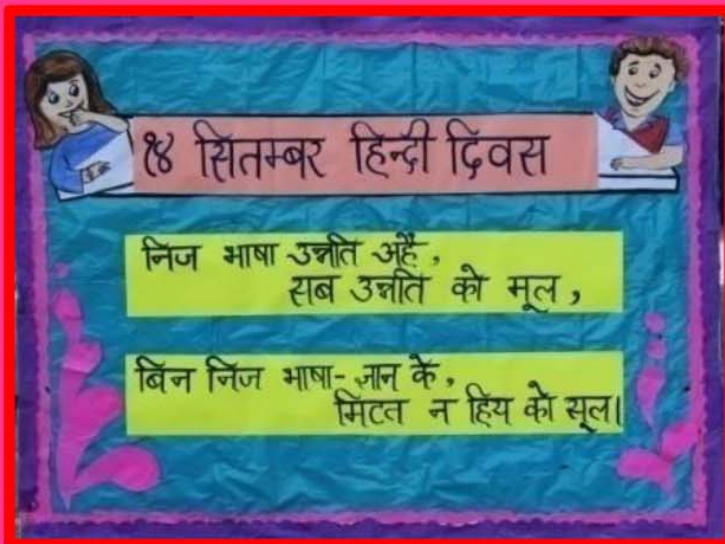 १४ सितम्बर हिन्दी दिवस
निज भाषा उन्नति अहै,
सब उन्नति को मूल,
बिन निज भाषा-ज्ञान के,
मिटत न हिय को सूल।